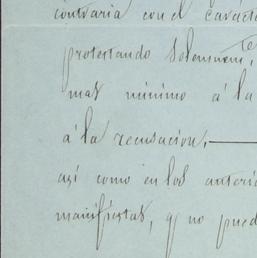 contraria con el carácte
protestando solemnem.te
mas mínimo á la
á la recusacion,
así como en los anteri
manifiestas, q no pued